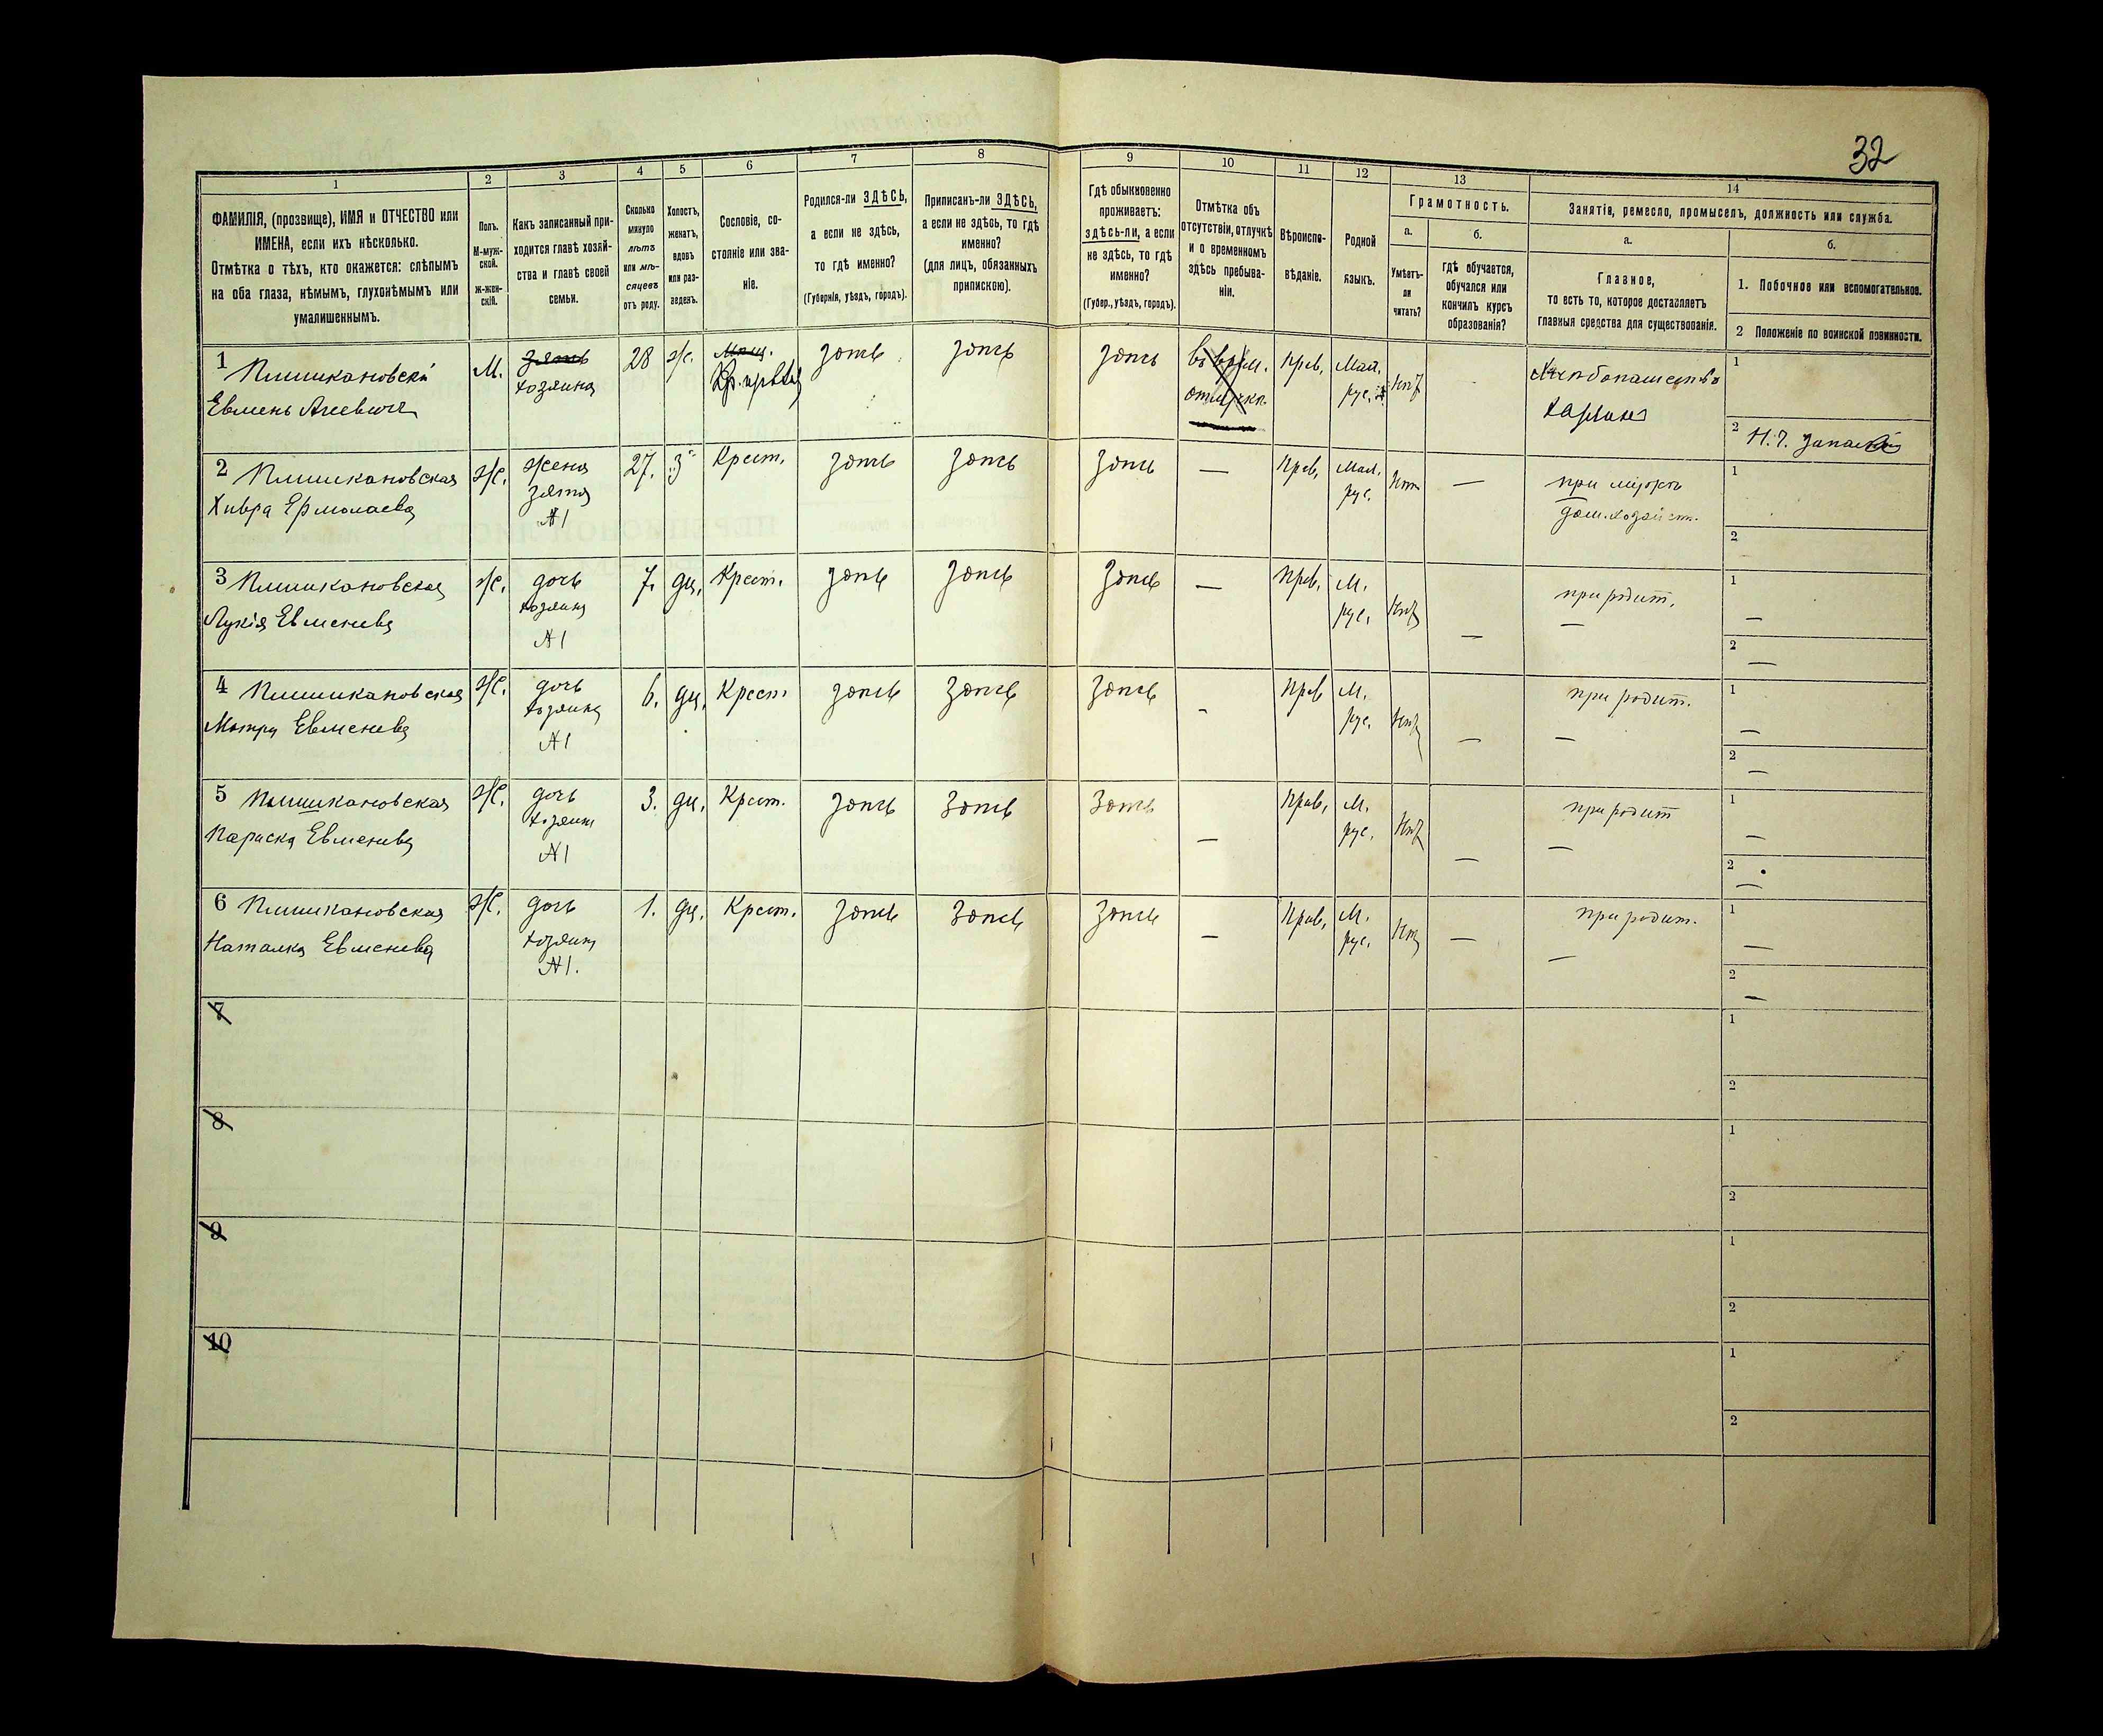 32
1
2
3
4
5
6
7
8
9
10
11
12
13
14
ФАМИЛІЯ, (прозвище), ИМЯ и ОТЧЕСТВО или
ИМЕНА, если ихъ нѣсколько.
Отмѣтка о тѣхъ, кто окажется: слѣпымъ
на оба глаза, нѣмымъ, глухонѣмымъ или
умалишеннымъ.
Полъ.
М-муж-
ской.
ж-жен-
скій.
Какъ записанный при-
ходится главѣ хозяй-
ства и главѣ своей
семьи.
Сколько
минуло
лѣтъ
или мѣ-
сяцевъ
отъ роду.
Холостъ,
женатъ,
вдовъ
или раз-
веденъ.
Сословіе, со-
стояніе или зва-
ніе.
Родился-ли ЗДѢСЬ,
а если не здѣсь,
то гдѣ именно?
(Губернія, уѣздъ, городъ).
Приписанъ-ли ЗДѢСЬ,
а если не здѣсь, то гдѣ
именно?
(для лицъ, обязанныхъ
припискою).
Гдѣ обыкновенно
проживаетъ:
здѣсь-ли, а если
не здѣсь, то гдѣ
именно?
(Губер., уѣздъ, городъ).
Отмѣтка объ
отсутствіи, отлучкѣ
и о временномъ
здѣсь пребыва-
ніи.
Вѣроиспо-
вѣданіе.
Родной
языкъ.
Грамотность.
а.
Умѣетъ-
ли
читать?
б.
гдѣ обучается,
обучался или
кончилъ курсъ
образованія?
Занятіе, ремесло, промыселъ, должность или служба.
а.
Главное,
то есть то, которое доставляетъ
главныя средства для существованія.
б.
1. Побочное или вспомогательное.
2 Положеніе по воинской повинности.
1 М. зять 28 ж. здѣсь здѣсь здѣсь въ врем. прав. Мал. нѣт Хлѣбопашество 1
Евмень хозяина отлучкѣ рус. хозяин
2
2 ж. жена 27. з. Крест. здѣсь здѣсь здѣсь — прав. Мал. нѣт — при мужѣ 1
Хивря Ермолаева зятя рус. дом. хозяйст.
№1 2
3 ж. дочь 7. дц. Крест. здѣсь здѣсь здѣсь — прав. М. нѣт — при родит. 1 —
Лукія Евменева хозяина рус. —
№1 2 —
4 ж. дочь 6. дц. Крест. здѣсь здѣсь здѣсь — прав М. нѣт — при родит. 1 —
Мотря Евменева хозяина рус. —
№1 2 —
5 ж. дочь 3. дц. Крест. здѣсь здѣсь здѣсь — прав. М. нѣт — при родит 1 —
Параска Евменева хозяина рус. —
№1 2 —
6 ж. дочь 1. дц. Крест. здѣсь здѣсь здѣсь — прав. М. нѣт — при родит. 1 —
Наталка Евменева хозяина рус. —
№1. 2 —
7 1
2
8 1
2
9 1
2
10 1
2